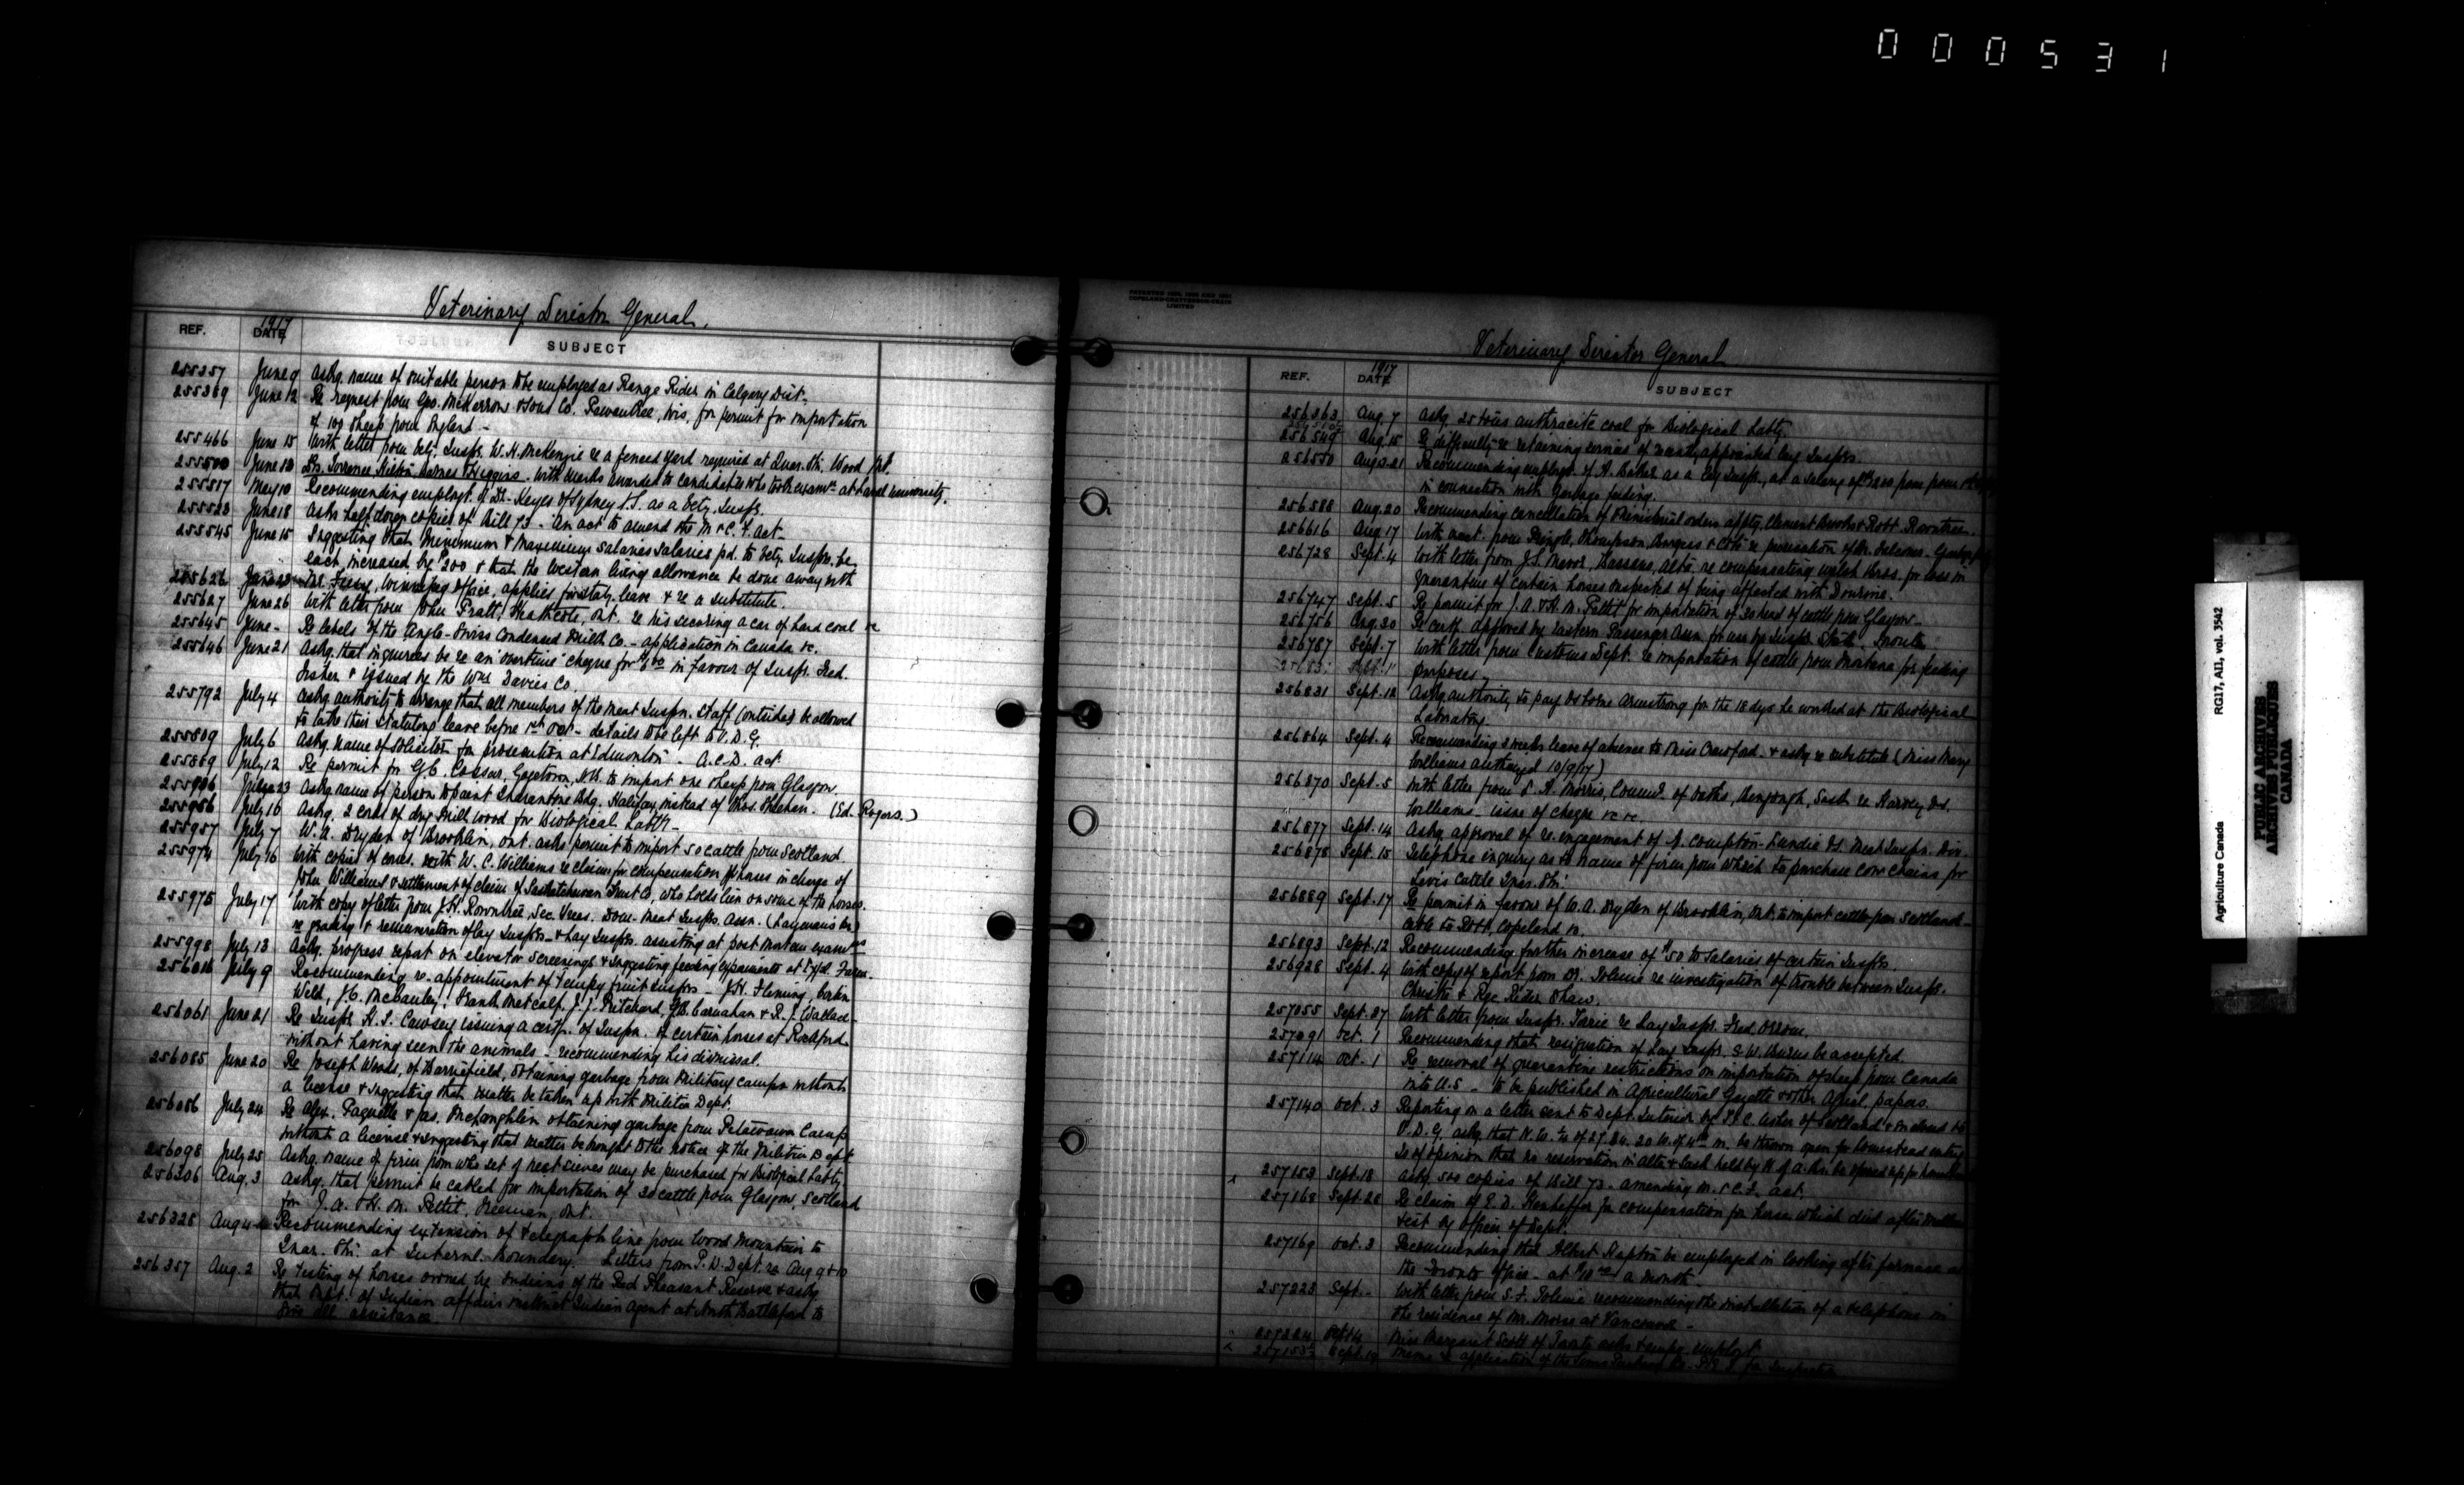 000531
Veterinary Director General.
REF. DATE 1917 SUBJECT
255357 June 9 Askg. name of suitable person to be employed as Range Rider in Calgary Dist.
255369 June 12 Re request from Geo. McKerrow & Sons Co. Pewaukee, Wis, for permit for importation
of 100 sheep from England -
255466 June 15 With letter from Vety. Inspr. W. H. McKenzie re a fenced yard required at Quar. Stn. Wood Mt.
255500 June 18 Drs. Torrance Hilton Barnes & Higgins. With marks awarded to candidates who took examn. at Laval University.
255517 May 10 Recommending employt. of Dr. Keyes of Sydney N.S. as a Vety. Inspr.
June 18 Asks half dozen copies of Bill 73 - An act to amend the M & C. F. Act -
255545 June 15 Suggesting that minimum & maximum salaries salaries pd. to Vety. Insprs. be
each increased by $200 & that the Western living allowance be done away with
255626 Winnipeg office, applies for staty. leave & re a substitute.
255627 June 26 With letter from John Pratt, Heathcote, Ont. re his securing a car of hard coal &c
255645 June - Re labels of the Anglo-Swiss Condensed Milk Co. - application in Canada &c.
255646 June 21 Askg. that inquiries be re an "overtime" cheque for in favour of Inspr. Fred.
Fisher & issued by the Wm Davies Co.
255792 July 4 Askg authority to arrange that all members of the Meat Inspn. Staff (outside) be allowed
to take their statutory leave before 1st Oct - details to be left to V. D. G.
255809 July 6 Askg. name of solicitor for prosecution at Edmonton - A.C.D. act
255869 July 12 Re permit for G.C. Cossar, Gagetown, N.B. to import one sheep from Glasgow.
23 Askg name of person to paint Quarantine Bldg. Halifax, instead of Thos. Sheehan. (Ed. Rogers.)
255956 July 16 Askg. 2 cords of dry mill wood for Biological Labty -
255957 July 7 W. A. Dryden of Brooklin, Ont. asks permit to import 50 cattle from Scotland.
255974 July 16 With copies of corres. with W. C. Williams re claim for compensation for horses in charge of
John Williams & settlement of claim of Saskatchewan Trust Co, who holds lien on some of the horses.
255975 July 17 With copy of letter from J.H. Rowntree, Sec. Treas. Dom. Meat Insprs. Assn. (Laymen's br.)
re grading & remuneration of lay Insprs. - & Lay Insprs. assisting at post mortem examns
255998 July 13 Askg. progress report on elevator screenings & suggesting feeding experiments at Exptl. Farm.
256016 July 9 Recommending re-appointment of Tempy fruit Insprs - J.H. Fleming, Corbin
Weld, J.C. McCauley, Frank Metcalf, J. J. Pritchard, G.B. Carnahan & R. J. Wallace -
256061 June 21 Re Inspr. H. S. Cawsey issuing a certf. of Inspn. of certain horses at Rockford
without having seen the animals - recommending his dismissal.
256085 June 20 Re Joseph Woods, of Barriefield, obtaining garbage from Military camps without
a license & suggesting that matter be taken up with Militia Dept.
256086 July 24 Re Alex. Paquette & Jas. McLoughlin obtaining garbage from Petawawa Camp
without a license & suggesting that matter be brought to the notice of the Militia Dept.
256098 July 25 Askg. name of firm from who set of nest sieves may be purchased for Biological Labty.
256306 Aug. 3 Askg. that permit be cabled for importation of 20 cattle from Glasgow, Scotland
for J. A. & H. M. Pettit, Freeman, Ont.
256328 Aug 4 Recommending extension of telegraph line from Wood Mountain to
Quar. Stn. at Internl. Boundary. Letters from P. W. Dept. re Aug 9 & 10
256357 Aug. 2 Re testing of horses owned by Indians of the Red Pheasant Reserve & askg.
that Dept. of Indian Affairs instruct Indian Agent at North Battleford to
give all assistance.
PATENTED
COPELAND-CHATTERSON-CRAIN
LIMITED
Veterinary Director General
REF. DATE 1917 SUBJECT
256363 Aug. 7 Askg. 25 tons anthracite coal for Biological Labty.
256549 Aug. 15 Re difficulty re retaining services of newly appointed lay Insprs.
256550 Aug. 21 Recommending employt. of A. Baker as a lay Inspr., at a salary of $1200 from
in connection with garbage feeding.
256588 Aug. 20 Recommending cancellation of Ministerial orders apptg. Clement Brooks & Robt. Rowntree.
256616 Aug 17 With acct. from Pringle, Thompson, Burgess & Coté re prosecution of
256728 Sept. 4 With letter from J.S. Bassano, Alta. re compensating Welsh Bros. for loss in
quarantine of certain horses suspected of being affected with Dourine.
256747 Sept. 5 Re permit for J. A. & H. M. Pettit for importation of 20 head of cattle from Glasgow -
256756 Aug. 20 Re certf. approved by Eastern Passenger Assn. for use by Inspr. Toronto
256787 Sept. 7 With letter from Customs Dept. re importation of cattle from Montana for feeding
purposes.
256831 Sept. 12 Askg authority to pay Armstrong for the 18 dys he worked at the Biological
Laboratory.
256864 Sept. 4 Recommending 3 weeks leave of absence to Miss Crawford & askg re substitute (Miss Mary
Williams authorized 10/9/17)
256870 Sept. 5 With letter from Morris, Commr. of Oaths, Bengough, Sask re Harvey
Williams - issue of cheque &c &c.
256877 Sept. 14 Askg approval of re-engagement of A. Compton-Lundie Meat Inspn. Div.
256878 Sept. 15 Telephone inquiry as to name of firm from which to purchase cow chains for
Levis Cattle Quar. Stn.
256889 Sept. 17 Re permit in favour of W. A. Dryden of Brooklin, Ont. to import cattle from Scotland -
cable to Robt. Copeland &c.
256893 Sept. 12 Recommending further increase of $50 to salaries of certain Insprs.
256928 Sept. 4 With copy of report from Dr. Tolmie re investigation of trouble between Inspr.
Christie & Rge Rider Shaw.
257055 Sept. 27 With letter from Inspr. re Lay Inspr. Fred. Orrom.
257091 Oct. 1 Recommending that resignation of Lay Inspr. S. W. Burns be accepted.
257114 Oct. 1 Re removal of quarantine restrictions on importation of sheep from Canada
into U.S. - to be published in Agricultural Gazette & other Agricl. papers.
257140 Oct. 3 Reporting on a letter sent to Dept. Interior by of Scotland
V. D. G. askg that N. W. ¼ of 27. 24. 20 W. of 4th m. be thrown open for homestead entry
Is of opinion that no reservation in Alta & Sask held by H. of A. Br. be opened up for
257153 Sept. 18 Askg. 500 copies of Bill 73 - amending M. & C. F. act.
257168 Sept. 26 Re claim of E. D. for compensation for horse which died after mallein
test by officer of Dept.
257169 Oct. 3 Recommending that Albert Rapton be employed in looking after furnace at
the Toronto office - at $10.00 a month
257223 Sept. - With letter from S. F. Tolmie recommending the installation of a telephone in
the residence of Mr. Morse at Vancouver -
257224 Oct. 4 Miss Margaret Scott of Toronto asks tempy. employt.
Sept. 19 Memo re application of the
Agriculture Canada RG17, A11, vol. 3542
PUBLIC ARCHIVES
ARCHIVES PUBLIQUES
CANADA